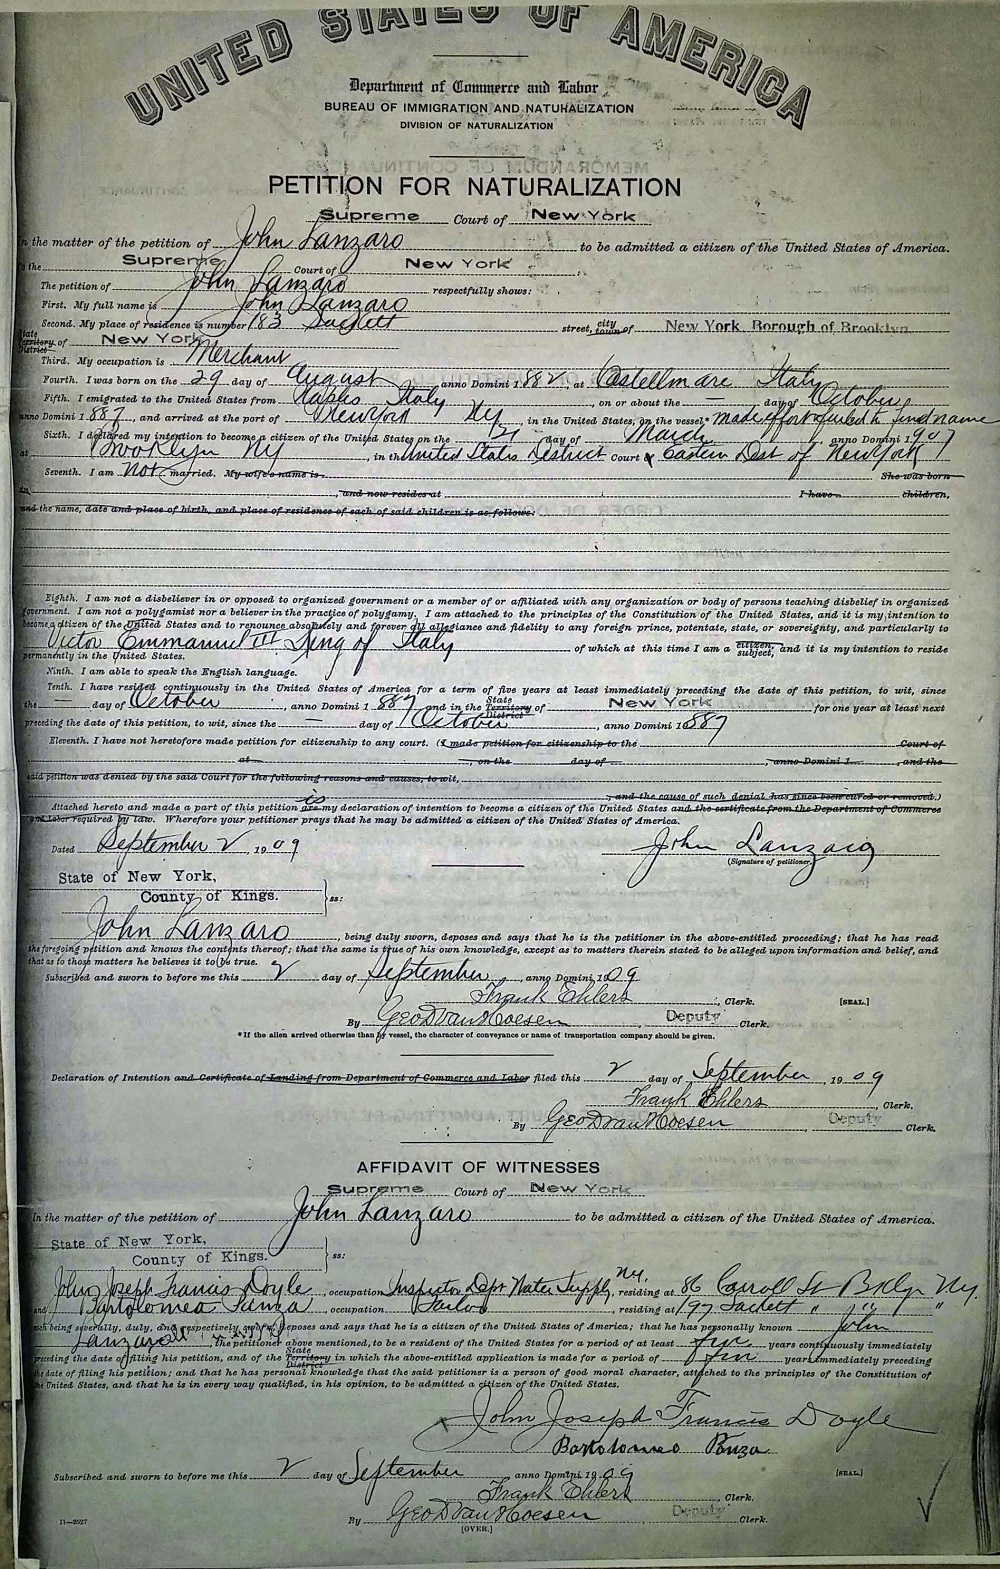 UNITED STATES OF AMERICA
Department of Commerce and Labor
BUREAU OF IMMIGRATION AND NATURALIZATION
DIVISION OF NATURALIZATION
PETITION FOR NATURALIZATION
Supreme Court of New York
In the matter of the petition of John Lanzaro to be admitted a citizen of the United States of America.
To the Supreme Court of New York
The petition of John Lanzaro respectfully shows:
First. My full name is John Lanzaro
Second. My place of residence is number 183 Sackett street, city town of New York, Borough of Brooklyn
State Territory District of New York
Third. My occupation is Merchant
Fourth. I was born on the 29 day of August anno Domini 1882, at Castellmare Italy
Fifth. I emigrated to the United States from Naples Italy, on or about the — day of October
anno Domini 1887, and arrived at the port of New York Ny, in the United States, on the vessel* Made effort failed to find name
Sixth. I declared my intention to become a citizen of the United States on the 21 day of March, anno Domini 1907
at Brooklyn NY, in the United States District Court of Eastern Dist of New York
Seventh. I am not married. My wife's name is She was born
in, and now resides at I have children,
and the name, date and place of birth, and place of residence of each of said children is as follows:
Eighth. I am not a disbeliever in or opposed to organized government or a member of or affiliated with any organization or body of persons teaching disbelief in organized
government. I am not a polygamist nor a believer in the practice of polygamy. I am attached to the principles of the Constitution of the United States, and it is my intention to
become a citizen of the United States and to renounce absolutely and forever all allegiance and fidelity to any foreign prince, potentate, state, or sovereignty, and particularly to
Victor Emmanuel III King of Italy of which at this time I am a citizen, subject, and it is my intention to reside
permanently in the United States.
Ninth. I am able to speak the English language.
Tenth. I have resided continuously in the United States of America for a term of five years at least immediately preceding the date of this petition, to wit, since
the — day of October, anno Domini 1887 and in the State Territory District of New York for one year at least next
preceding the date of this petition, to wit, since the — day of October, anno Domini 1887
Eleventh. I have not heretofore made petition for citizenship to any court. (I made petition for citizenship to the Court of
at, on the day of, anno Domini 1, and the
said petition was denied by the said Court for the following reasons and causes, to wit,
, and the cause of such denial has since been cured or removed.)
Attached hereto and made a part of this petition are is my declaration of intention to become a citizen of the United States and the certificate from the Department of Commerce
and Labor required by law. Wherefore your petitioner prays that he may be admitted a citizen of the United States of America.
Dated September 2, 1909
John Lanzaro
(Signature of petitioner.)
State of New York,
County of Kings. ss:
John Lanzaro, being duly sworn, deposes and says that he is the petitioner in the above-entitled proceeding; that he has read
the foregoing petition and knows the contents thereof; that the same is true of his own knowledge, except as to matters therein stated to be alleged upon information and belief, and
that as to those matters he believes it to be true.
Subscribed and sworn to before me this 2 day of September, anno Domini 1909
Frank Ehlers, Clerk. [SEAL.]
By Geo D Van Hoesen, Deputy Clerk.
*If the alien arrived otherwise than by vessel, the character of conveyance or name of transportation company should be given.
Declaration of Intention and Certificate of Landing from Department of Commerce and Labor filed this 2 day of September, 1909
Frank Ehlers, Clerk.
By Geo D Van Hoesen, Deputy Clerk.
AFFIDAVIT OF WITNESSES
Supreme Court of New York
In the matter of the petition of John Lanzaro to be admitted a citizen of the United States of America.
State of New York,
County of Kings. ss:
John Joseph Francis Doyle, occupation Inspector Dept Water Supply, Ny. residing at 86 Carroll St Bklyn Ny.
and Bartolomeo Panza, occupation Tailor, residing at 197 Sackett " " "
each being severally, duly, and respectively sworn, deposes and says that he is a citizen of the United States of America; that he has personally known John
Lanzaro, the petitioner above mentioned, to be a resident of the United States for a period of at least five years continuously immediately
preceding the date of filing his petition, and of the State Territory District in which the above-entitled application is made for a period of five years immediately preceding
the date of filing his petition; and that he has personal knowledge that the said petitioner is a person of good moral character, attached to the principles of the Constitution of
the United States, and that he is in every way qualified, in his opinion, to be admitted a citizen of the United States.
John Joseph Francis Doyle
Bartolomeo Panza
Subscribed and sworn to before me this 2 day of September anno Domini 1909 [SEAL.]
Frank Ehlers, Clerk.
By Geo D Van Hoesen, Deputy Clerk.
11—2527
[OVER.]